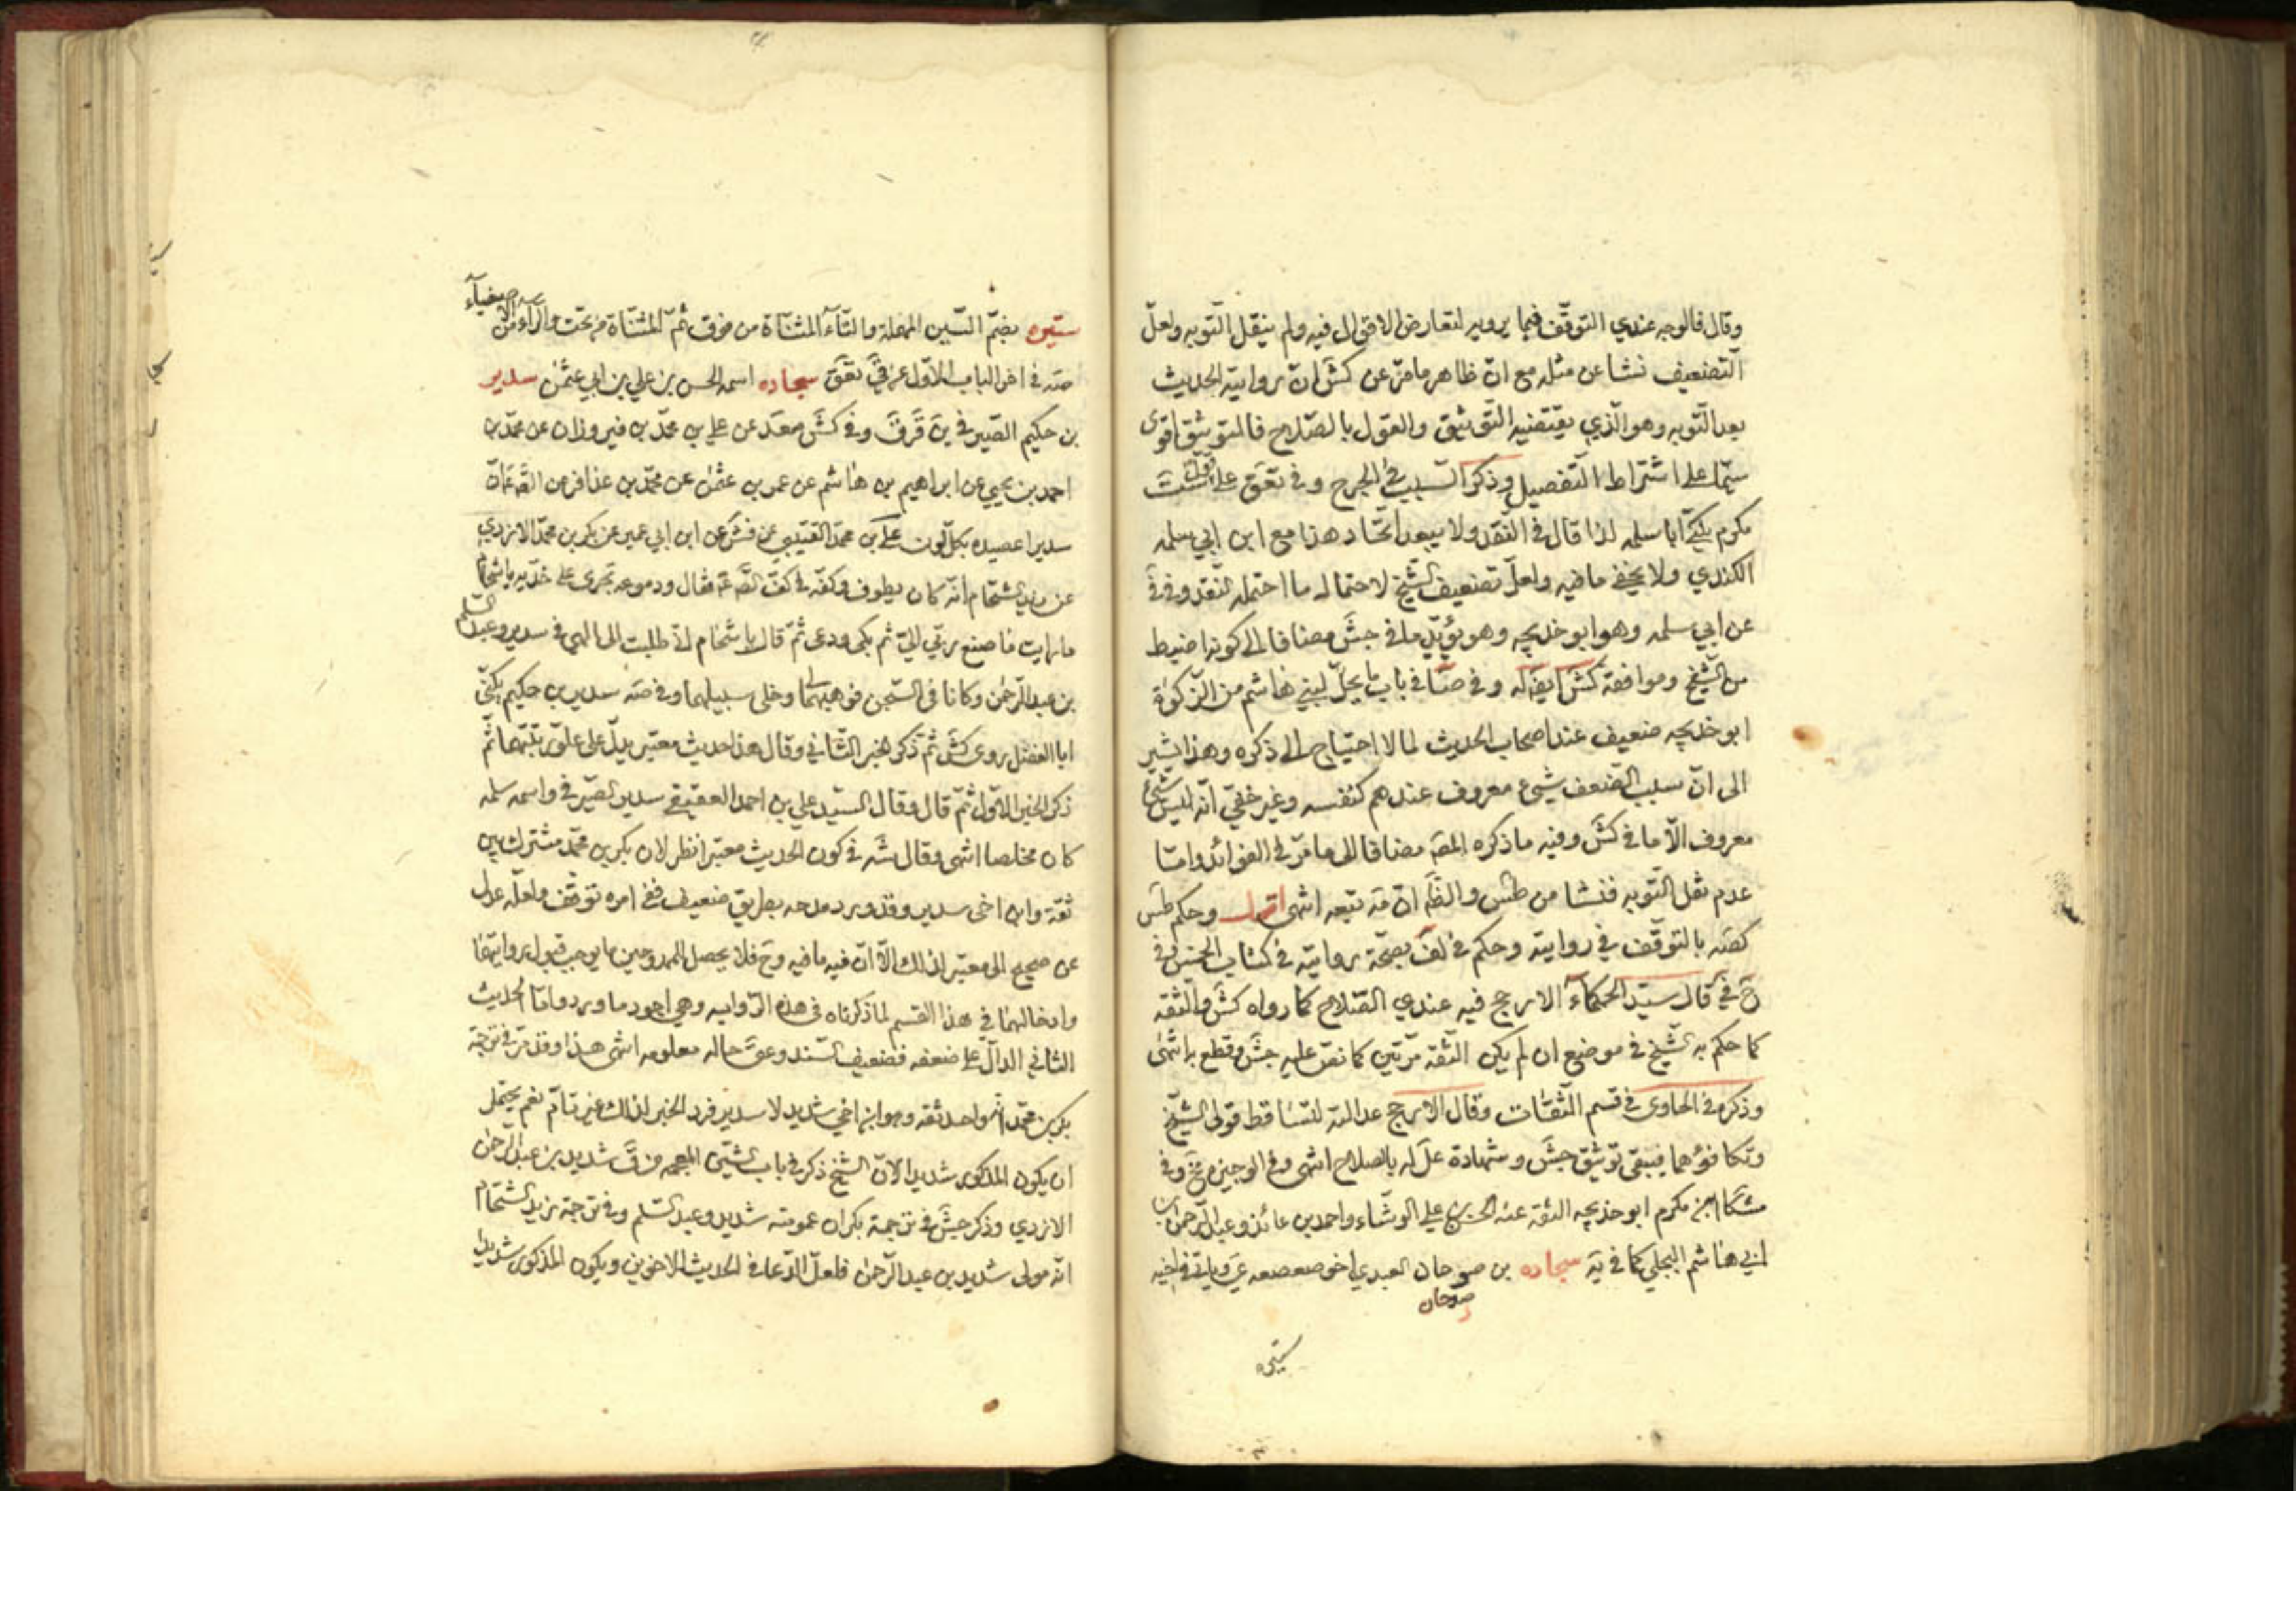 وقال فالوجه عندي التوقّف فيما يرويه لتعارض الاقوال فيه ولم ينقل التوبه ولعلّ
التضعيف نشا عن مثله مع انّ ظاهر ما مرّ عن كش ان روايته الحديث
بعد التوبه وهو الذي يقتضيه التوثيق والقول بالصّلاح فالتوثيق اقوى
سيّما على اشتراط التفصيل وذكر السّبب في الجرح وفي تعق على قول ست
مكرم يكنّى ابا سلمه لذا قال في النقد ولا يبعد اتّحاد هذا مع ابن ابي سلمه
الكندي ولا يخفى ما فيه ولعلّ تضعيف الشّيخ لاحتماله ما احتمله النّقد وفي في
عن ابي سلمه وهو ابو خديجه وهو يؤيّد ما في جش مضافا الى كونه اضبط
من الشّيخ وموافقة كش ايضا له وفي صا في باب ما يحلّ لبني هاشم من الزّكوة
ابو خديجه ضعيف عند اصحاب الحديث لما لا احتياج الى ذكره وهذا يشير
الى انّ سبب الضعف شيء معروف عندهم كنفسه وغير خفيّ انّه ليس شيء
معروف الّا ما في كش وفيه ما ذكره المص مضافا الى ما مرّ في الفوائد وامّا
عدم نقل التّوبه فنشا من طس والظّ انّ مه تبعه انتهى اقول وحكم طس
كصه بالتوقّف في روايته وحكم في لف بصحّة روايته في كتاب الخمس وفي
ح في قال سيّد الحكماء الارجح فيه عندي الصّلاح كما رواه كش والثّقه
كما حكم به الشّيخ في موضع ان لم يكن الثّقة مرّتين كما نصّ عليه جش وقطع به انتهى
وذكره في الحاوي في قسم الثّقات وقال الارجح عدالته لتساقط قولي الشّيخ
وتكافؤهما فيبقى توثيق جش وشهادة عل له بالصلاح انتهى وفي الوجيزه مخ وفي
مشكا ابن مكرم ابو خديجه الثقة عنه الحسن بن علي الوشّاء واحمد بن عائذ وعبد الرّحمن بن
ابي هاشم البجلي كما في يه سجاده بن صوحان العبدي اخو صعصعه ي وياتي في اخيه
صوحان
ستيره
ستيره بضمّ السّين المهملة والتّاء المثنّاة من فوق ثمّ المثنّاة من تحت والرّاء من الاصفياء
صه في اخر الباب الاوّل عن قي تعق سجاده اسمه الحسن بن علي بن ابي عثمن سدير
بن حكيم الصّيرفي ين قر ق وفي كش محمد عن علي بن محمّد بن فيروزان عن محمّد بن
احمد بن يحيى عن ابراهيم بن هاشم عن عمرو بن عثمن عن محمّد بن عذافر عن الصّ ع انّ
سديرا عصيده بكلّ لون علي بن محمّد القتيبي عن فش عن ابن ابي عمير عن بكر بن محمّد الازدي
عن زيد الشّحّام انّه كان يطوف وكفّه في كفّ الصّ ع فقال ودموعه تجري على خدّيه يا شحّام
ما رايت ما صنع ربّي اليّ ثم بكى ودعى ثمّ قال يا شحّام انّي طلبت الى الهي في سدير وعبد السّلم
بن عبد الرّحمن وكانا في السّجن فوهبهما لي وخلى سبيلهما وفي صه سدير بن حكيم يكنّى
ابا الفضل روى كش ثمّ ذكر الخبر الثّاني وقال هذا حديث معتبر يدلّ على علوّ رتبتهما ثمّ
ذكر الخبر الاوّل ثمّ قال وقال السيّد علي بن احمد العقيقي سدير الصيرفي واسمه سلمه
كان مخلصا انتهى وقال شه في كون الحديث معتبرا نظر لان بكر بن محمّد مشترك بين
ثقة وابن اخي سدير وقد ورد مدحه بطريق ضعيف ففي امره توقّف ولعلّه عدل
عن صحيح الى معتبر لذلك الّا انّ فيه ما فيه وح فلا يحصل للممدوحين ما يوجب قبول روايتهما
وادخالهما في هذا القسم لما ذكرناه في هذه الرّوايه وهي اجود ما ورد وامّا الحديث
الثاني الدالّ على ضعفه فضعيف السّند وعق حاله معلومه انتهى هذا وقد مرّ في ترجمة
بكر بن محمّد انّه واحد ثقه وهو ابن اخي شديد لا سدير فرد الخبر لذلك غير تامّ نعم يحتمل
ان يكون المذكور شديدا لانّ الشّيخ ذكر في باب الشّين المعجمه من ق شديد بن عبد الرّحمن
الازدي وذكر جش في ترجمة بكر ان عمومته شديد وعبد السّلم وفي ترجمة زيد الشّحّام
انّه مولى شديد بن عبد الرّحمن فلعلّ الدّعا في الحديث للاخوين ويكون المذكور شديدا